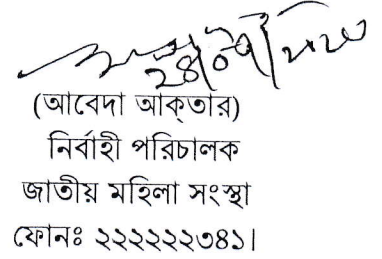 (আবেদা আক্তার)
নির্বাহী পরিচালক
জাতীয় মহিলা সংস্থা
ফোনঃ ২২২২২২৩৪১।